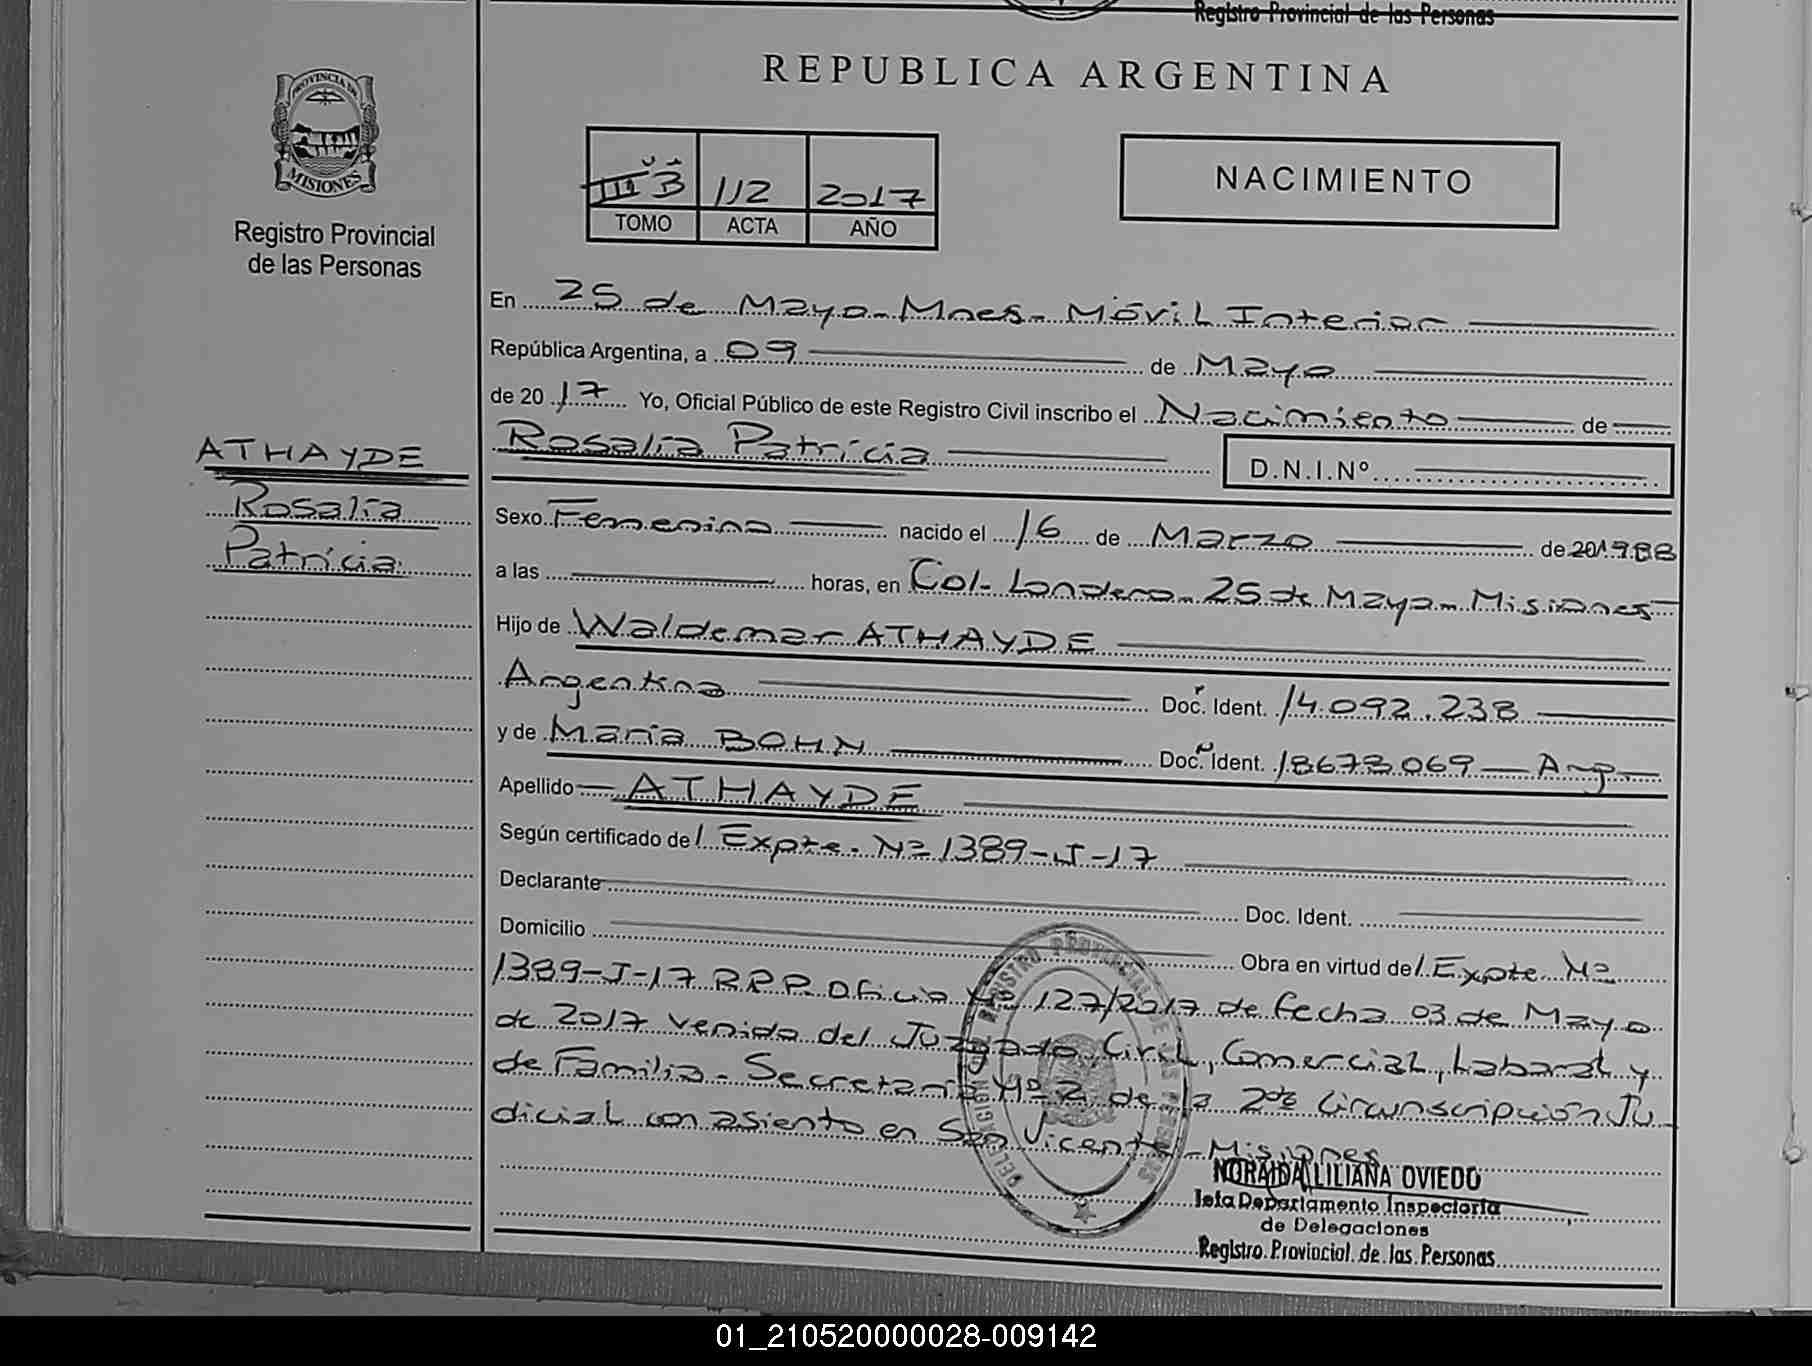 Registro Provincial de las Personas
REPUBLICA ARGENTINA
PROVINCIA DE
MISIONES
Registro Provincial
de las Personas
III B 112 2017
TOMO ACTA AÑO
NACIMIENTO
En 25 de Mayo - Mnes - Móvil Interior
República Argentina, a 09 de Mayo
de 2017 Yo, Oficial Público de este Registro Civil inscribo el Nacimiento de
Rosalia Patricia D.N.I.Nº
ATHAYDE
Rosalia
Patricia
Sexo Femenino nacido el 16 de Marzo de 201988
a las horas, en Col- Londero - 25 de Mayo - Misiones
Hijo de Waldemar ATHAYDE
Argentino Doc. Ident. 14.092.238
y de Maria BOHN Doc. Ident. 18673.069 - Arg.
Apellido ATHAYDE
Según certificado de / Expte. Nº 1389-J-17
Declarante Doc. Ident.
Domicilio Obra en virtud de / Expte Nº
1389-J-17 R.P.P. Oficio Nº 127/2017 de fecha 03 de Mayo
de 2017 venido del Juzgado, Civil, Comercial, Laboral y
de Familia - Secretaria Nº 2 de la 2da Circunscripción Ju-
dicial con asiento en San Vicente - Misiones
REGISTRO PROVINCIAL DE LAS PERSONAS
NORAIDA LILIANA OVIEDO
Jefa Departamento Inspectoria
de Delegaciones
Registro Provincial de las Personas
01_210520000028-009142